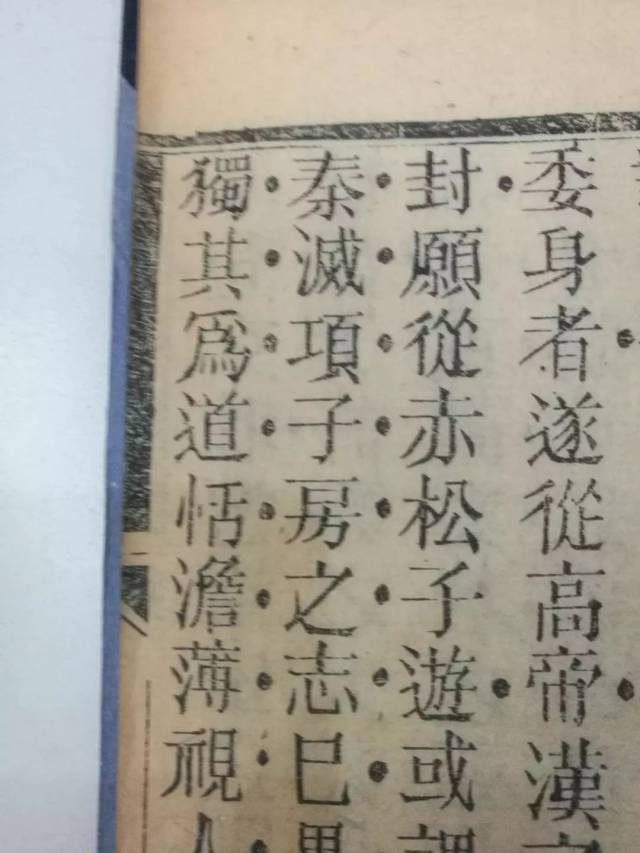 委身者遂從高帝漢
封願從赤松子遊或謂
秦滅項子房之志巳畢
獨其爲道恬澹薄視人